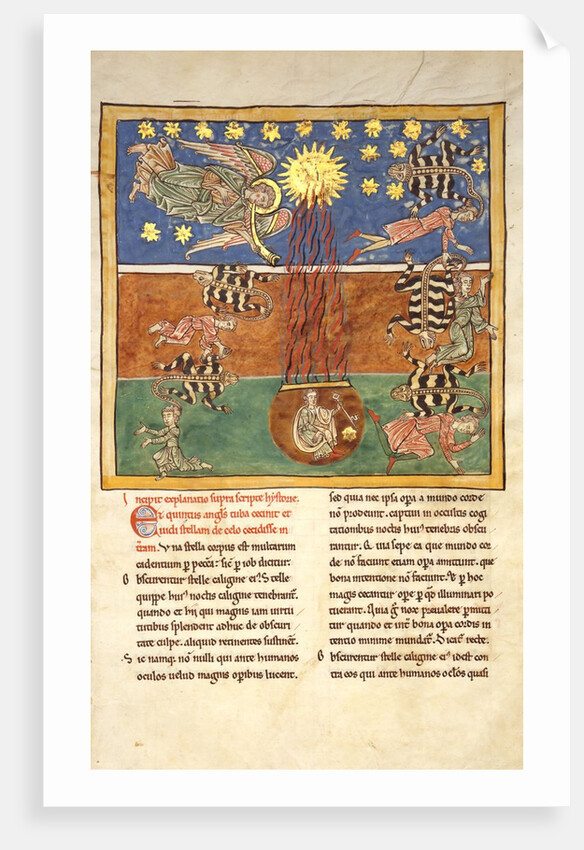 Incipit explanatio supra scripte hystorie.
Et quintus angłs tuba cecinit et
uidi stellam de celo cecidisse in
t̄ram. Vna stella corpus est multarum
cadentium ꝑ pecc̄a: sic̄ ꝑ iob dicitur.
Obscurentur stelle caligine ei⁹. Stelle
quippe hui⁹ noctis caligine tenebrant᷑.
quando et hij qui magnis iam uirtu
tibus splendent adhuc de obscuri
tate culpe. aliquid retinentes sustinent᷑.
Sic namq; nōnulli qui ante humanos
oculos uelud magnis oꝑibus lucent.
sed quia nec ipsa oꝑa a mundo corde
nō prodeunt. captiui in occultis cogi
tationibus noctis hui⁹ tenebris obscu
rantur. & ita sepe ea que mundo cor
de nō faciunt etiam oꝑa amittunt. que
bona intentione nō faciunt. & ꝑ hoc
magis cecantur ope ꝑ q̄ illuminari po
tuerant. Quia g̊ nox preualere ꝑmitti
tur quando et int̄ bona oꝑa cordis in
tentio minime mundat᷑. Dicat᷑ recte.
Obscurentur stelle caligine ei⁹ idest con
tra eos qui ante humanos oc̄los quasi